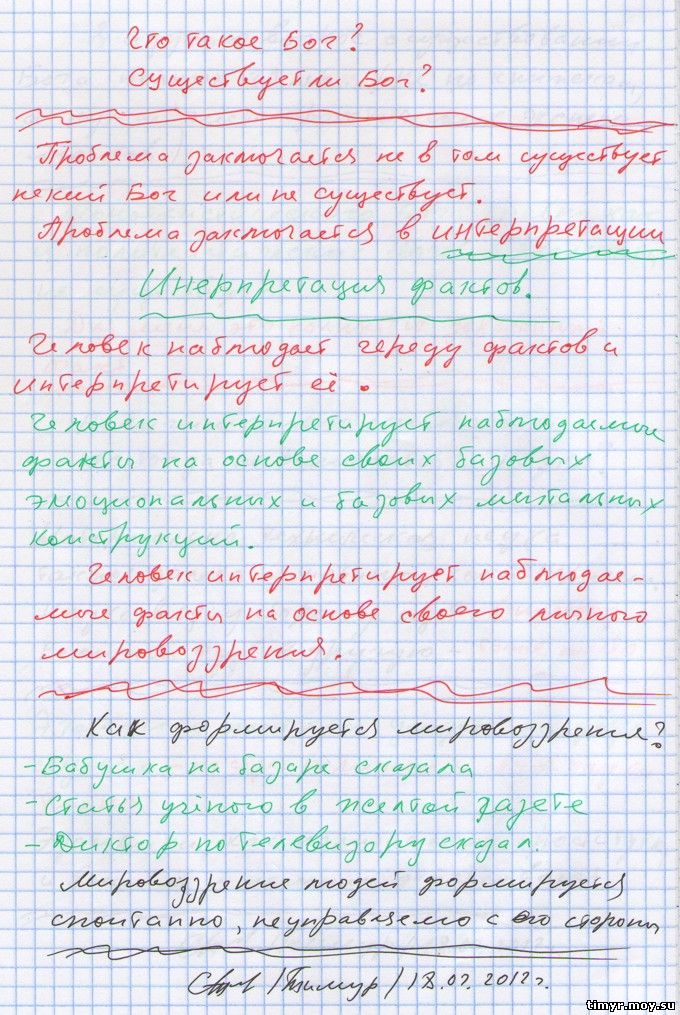 Что такое Бог?
Существует ли Бог?
Проблема заключается не в том существует
некий Бог или не существует.
Проблема заключается в интерпретации
Инерпретация фактов.
Человек наблюдает череду фактов и
интерпретирует её.
Человек интерпретирует наблюдаемые
факты на основе своих базовых
эмоциональных и базовых ментальных
конструкций.
Человек интерпретирует наблюдае-
мые факты на основе своего личного
мировоззрения.
Как формируется мировоззрения?
- Бабушка на базаре сказала
- Статья учёного в желтой газете
- Диктор по телевизору сказал.
Мировоззрение людей формируется
спонтанно, неуправляемо с его стороны
/Тимур/ 18.02.2012г.
timyr.moy.su